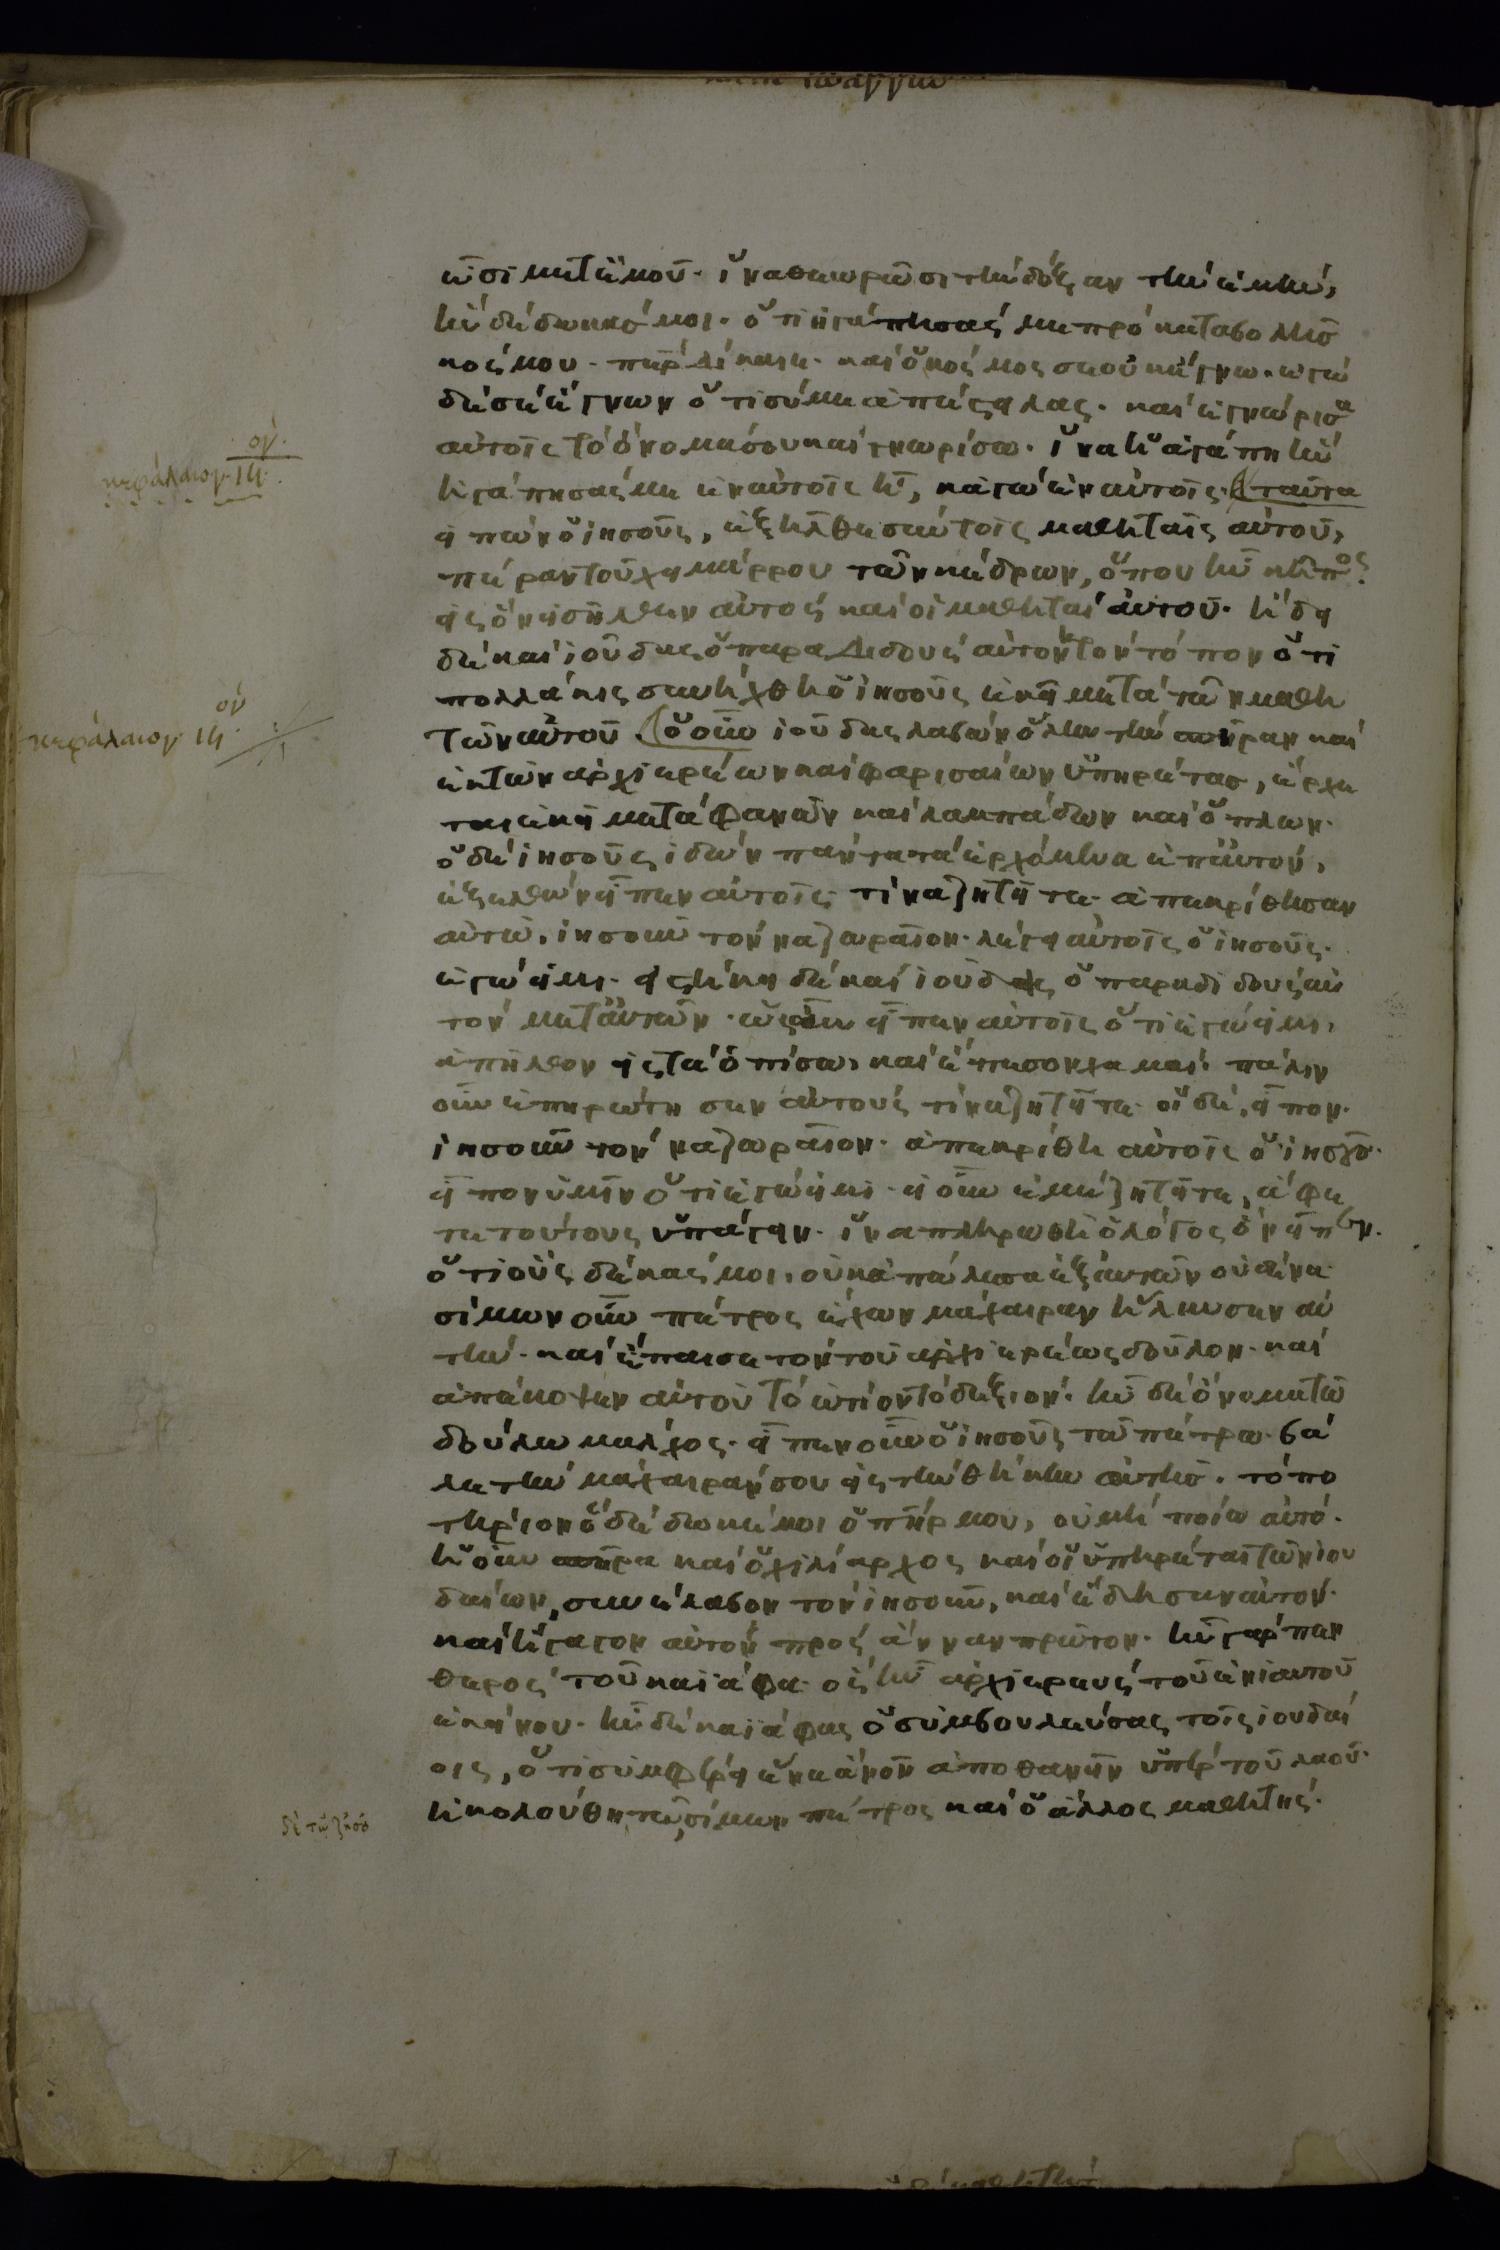 ὦσι μετ ἐμοῦ· ἵνα θεωρῶσι τὴν δόξαν τὴν ἐμὴν,
ἣν δέδωκάς μοι· ὅτι ἠγάπησάς με πρὸ καταβολῆς
κόσμου· πῆρ δίκαιε· καὶ ὁ κόσμος σε οὐκ ἔγνω· ἐγὼ
δέ σε ἔγνων ὅτι σύ με ἀπέστειλας· καὶ ἐγνώρισα
αὐτοῖς τὸ ὄνομά σου καὶ γνωρίσω· ἵνα ἡ ἀγάπη ἣν
ἠγάπησάς με ἐν αὐτοῖς ᾖ, κἀγὼ ἐν αὐτοῖς· ταῦτα
κεφάλαιον ιη ον
εἰπὼν ὁ ἰησοῦς, ἐξῆλθε σὺν τοῖς μαθηταῖς αὐτοῦ,
πέραν τοῦ χειμάρρου τῶν κέδρων, ὅπου ἦν κῆπος
εἰς ὃν εἰσῆλθεν αὐτὸς καὶ οἱ μαθηταὶ αὐτοῦ· ἤδει
δὲ καὶ ἰούδας ὁ παραδιδοὺς αὐτὸν τὸν τόπον ὅτι
πολλάκις συνήχθη ὁ ἰησοῦς ἐκεῖ μετὰ τῶν μαθη
τῶν αὐτοῦ· ὁ οὖν ἰούδας λαβὼν ὅλην τὴν σπῆραν καὶ
κεφάλαιον ιη ον
ἐκ τῶν ἀρχιερέων καὶ φαρισαίων ὑπηρέτας, ἔρχε
ται ἐκεῖ μετὰ φανῶν καὶ λαμπάδων καὶ ὅπλων·
ὁ δὲ ἰησοῦς ἰδὼν πάντα τὰ ἐρχόμενα ἐπ αὐτὸν,
ἐξελθὼν εἶπεν αὐτοῖς τίνα ζητεῖτε· ἀπεκρίθησαν
αὐτῶ, ἰησοῦν τὸν ναζωραῖον· λέγει αὐτοῖς ὁ ἰησοῦς·
ἐγώ εἰμι· εἱστήκει δὲ καὶ ἰούδας ὁ παραδιδοὺς αὐ
τὸν μετ αὐτῶν· ὡς οὖν εἶπεν αὐτοῖς ὅτι ἐγώ εἰμι,
ἀπῆλθον εἰς τὰ ὀπίσω, καὶ ἔπεσον χαμαί· πάλιν
οὖν ἐπηρώτησεν αὐτοὺς τίνα ζητεῖτε· οἱ δὲ, εἶπον·
ἰησοῦν τὸν ναζωραῖον· ἀπεκρίθη αὐτοῖς ὁ ἰησοῦς·
εἶπον ὑμῖν ὅτι ἐγώ εἰμι· εἰ οὖν ἐμὲ ζητεῖτε, ἄφε
τε τούτους ὑπάγειν· ἵνα πληρωθῆ ὁ λόγος ὃν εἶπεν·
ὅτι οὓς δέδωκάς μοι, οὐκ ἀπώλεσα ἐξ αὐτῶν οὐδένα
σίμων οὖν πέτρος ἔχων μάχαιραν εἵλκυσεν αὐ
τὴν· καὶ ἔπαισε τὸν τοῦ ἀρχιερέως δοῦλον· καὶ
ἀπέκοψεν αὐτοῦ τὸ ὠτίον τὸ δεξιόν· ἦν δὲ ὄνομα τῶ
δούλω μάλχος· εἶπεν οὖν ὁ ἰησοῦς τῶ πέτρω· βά
λε τὴν μάχαιράν σου εἰς τὴν θήκην αὐτῆς· τὸ πο
τήριον ὃ δέδωκέ μοι ὁ πῆρ μου, οὐ μὴ πίω αὐτό·
ἡ οὖν σπῆρα καὶ ὁ χιλίαρχος καὶ οἱ ὑπηρέται τῶν ἰου
δαίων, συνέλαβον τὸν ἰησοῦν, καὶ ἔδησαν αὐτόν·
καὶ ἤγαγον αὐτὸν πρὸς ἄνναν πρῶτον· ἦν γὰρ πεν
θερὸς τοῦ καϊάφα· ὃς ἦν ἀρχιερεὺς τοῦ ἐνιαυτοῦ
ἐκείνου· ἦν δὲ καϊάφας ὁ συμβουλεύσας τοῖς ἰουδαί
οις, ὅτι συμφέρει ἕνα ἄνον ἀποθανεῖν ὑπὲρ τοῦ λαοῦ·
δὲ τῶ ἰησοῦ
ἠκολούθει σίμων πέτρος καὶ ὁ ἄλλος μαθητής·